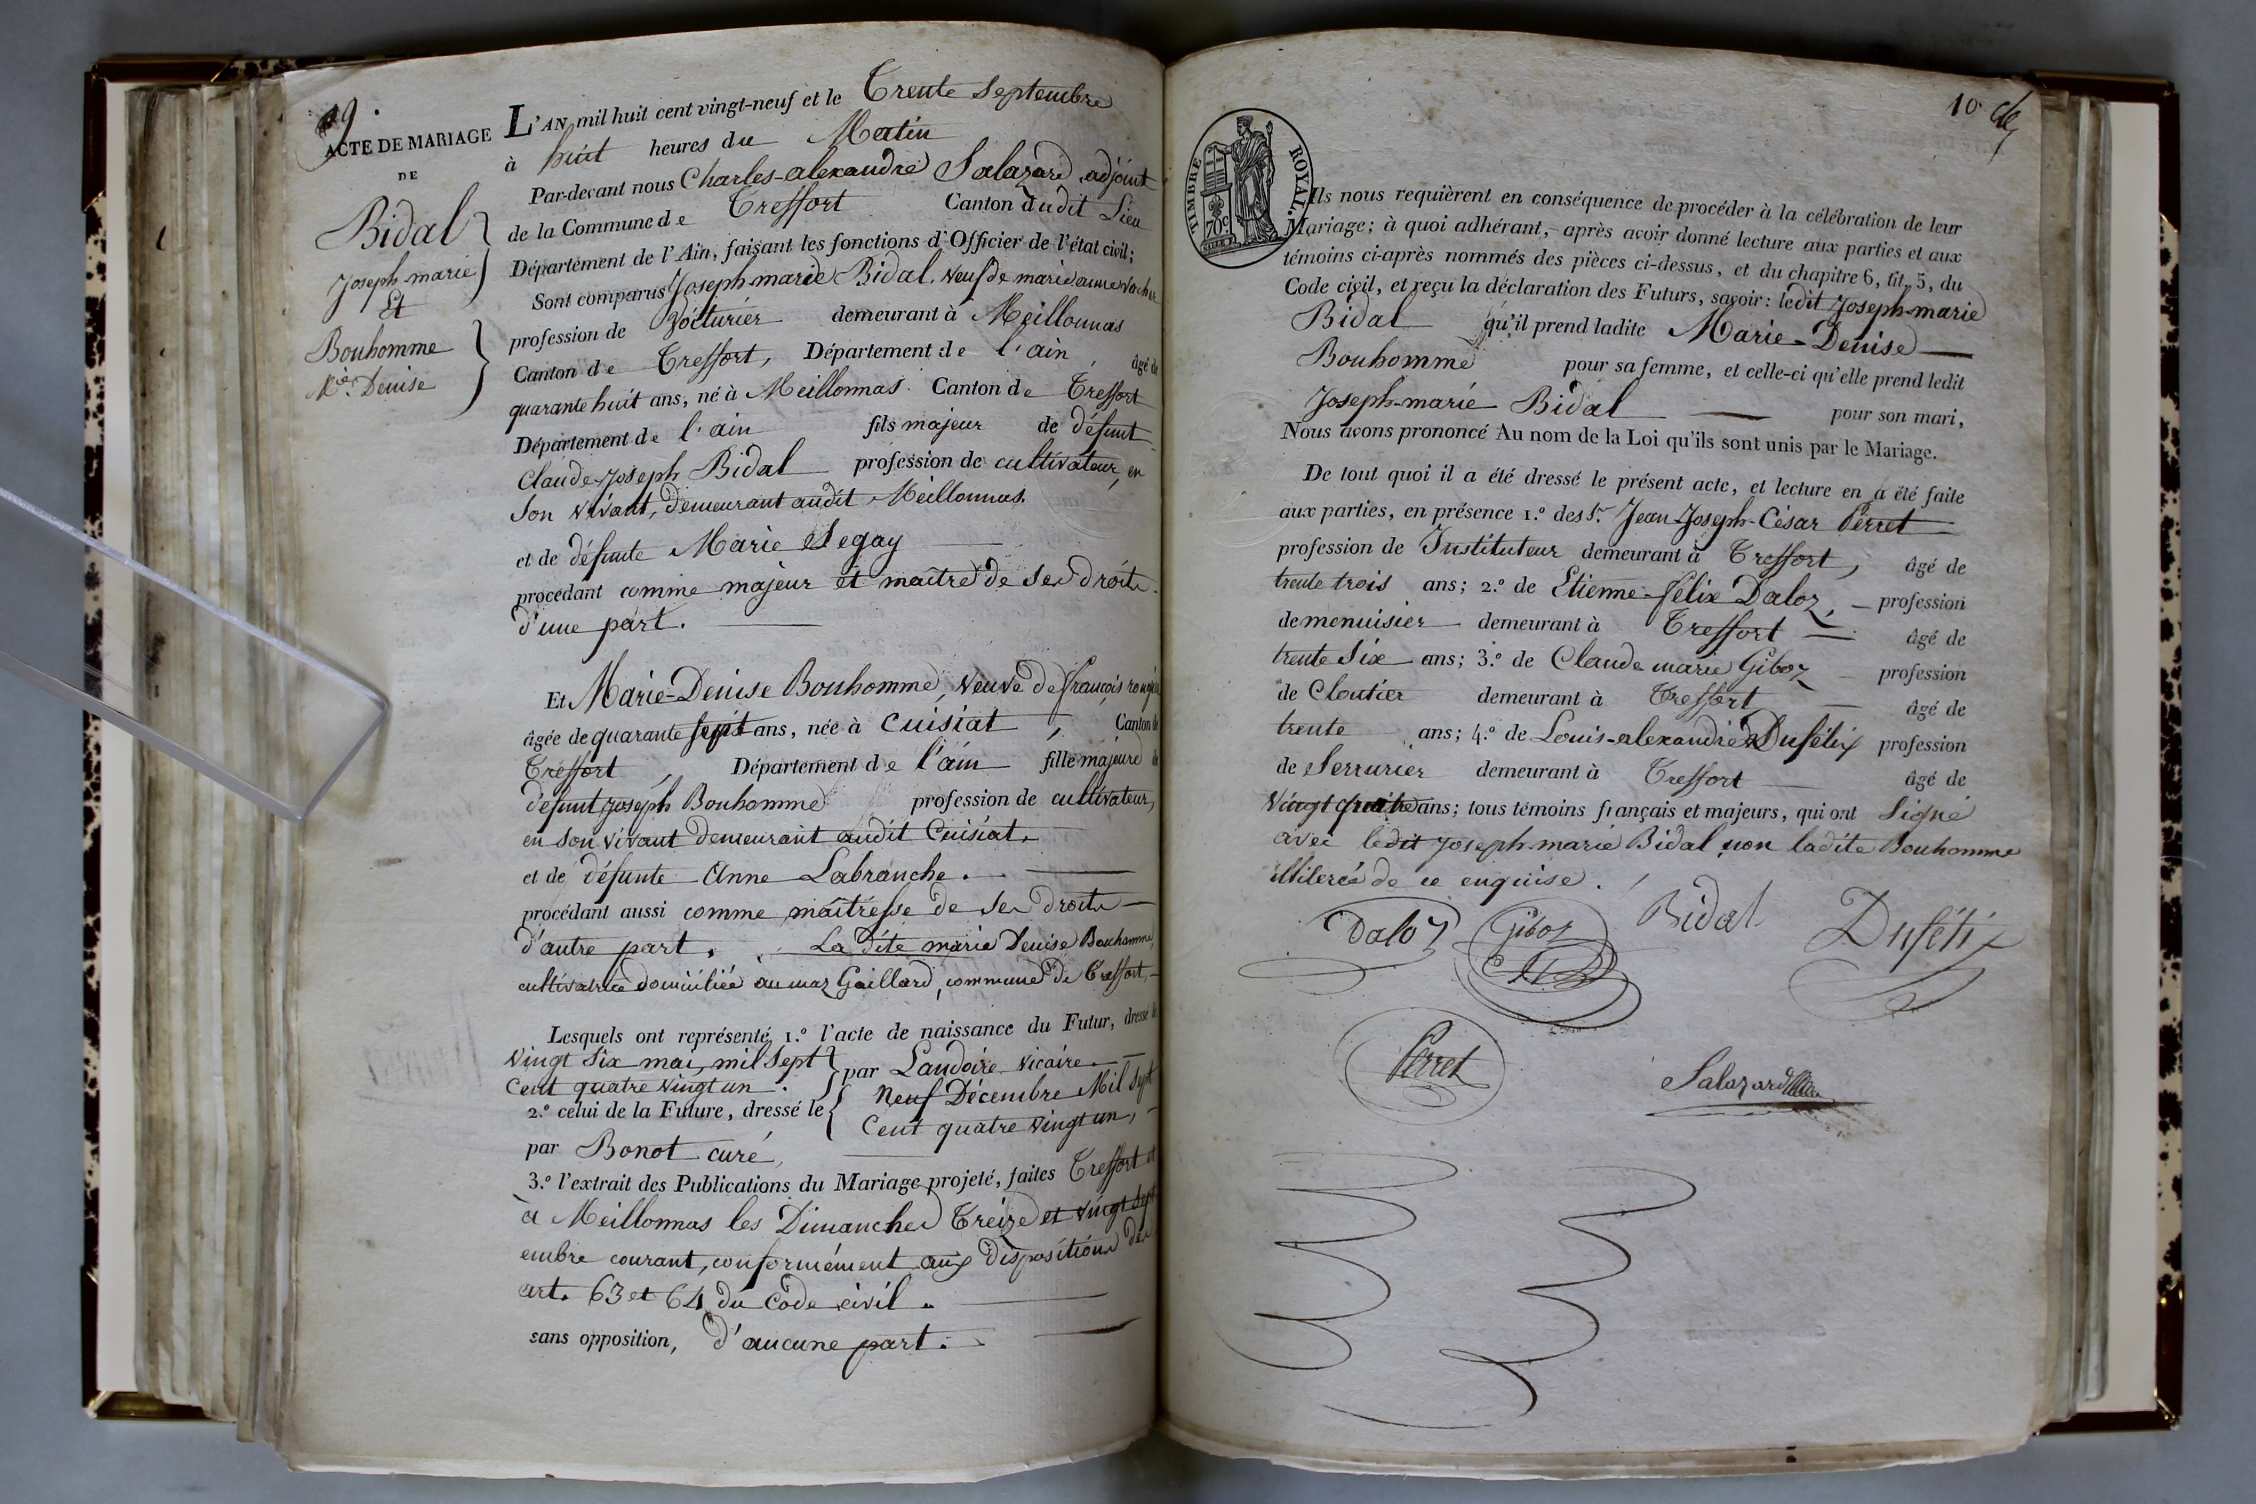 9.
ACTE DE MARIAGE
DE
Bidal
Joseph-marie
Et
Bonhomme
Mie. Denise
L'AN mil huit cent vingt-neuf et le Trente Septembre
à huit heures du Matin
Par-devant nous Charles-alexandre Salazard, adjoint
de la Commune de Treffort Canton dudit Lieu
Département de l'Ain, faisant les fonctions d'Officier de l'état civil;
Sont comparus Joseph-marie Bidal, veuf de marie anne Vocher
profession de Voiturier demeurant à Meillonnas
Canton de Treffort, Département de l'ain, âgé de
quarante huit ans, né à Meillonnas Canton de Treffort
Département de l'ain fils majeur de défunt
Claude-Joseph Bidal profession de cultivateur, en
son vivant, demeurant audit Meillonnas.
et de défunte Marie Segay
procédant comme majeur et maître de ses droits
d'une part.
Et Marie-Denise Bonhomme, veuve de françois
âgée de quarante sept ans, née à Cuisiat, Canton de
Treffort, Département de l'ain fille majeure de
défunt joseph Bonhomme profession de cultivateur,
en son vivant demeurant audit Cuisiat,
et de défunte Anne Labranche.
procédant aussi comme maîtresse de ses droits
d'autre part. La dite marie Denise Bonhomme,
cultivatrice domiciliée au maz Gaillard, commune de Treffort,
Lesquels ont représenté 1.º l'acte de naissance du Futur, dressé le
vingt six mai, mil sept
cent quatre vingt un. par Landoire vicaire.
2.º celui de la Future, dressé le neuf Décembre Mil sept
cent quatre vingt un,
par Bonot curé,
3.º l'extrait des Publications du Mariage projeté, faites Treffort et
à Meillonnas les Dimanches Treize et vingt sept
embre courant, conformément aux dispositions des
art. 63 et 64 du Code civil.
sans opposition, d'aucune part.
10
TIMBRE ROYAL.
70c
Ils nous requièrent en conséquence de procéder à la célébration de leur
Mariage; à quoi adhérant, après avoir donné lecture aux parties et aux
témoins ci-après nommés des pièces ci-dessus, et du chapitre 6, tit. 5, du
Code civil, et reçu la déclaration des Futurs, savoir: ledit Joseph-marie
Bidal qu'il prend ladite Marie-Denise
Bonhomme pour sa femme, et celle-ci qu'elle prend ledit
Joseph-marie Bidal pour son mari,
Nous avons prononcé Au nom de la Loi qu'ils sont unis par le Mariage.
De tout quoi il a été dressé le présent acte, et lecture en a été faite
aux parties, en présence 1.º des Sr. Jean-Joseph-César Perret
profession de Instituteur demeurant à Treffort, âgé de
trente trois ans; 2.º de Etienne-félix Daloz, profession
de menuisier demeurant à Treffort âgé de
trente six ans; 3.º de Claude marie Giboz profession
de Cloutier demeurant à Treffort âgé de
trente ans; 4.º de Louis-alexandre Dufélix profession
de Serrurier demeurant à Treffort âgé de
vingt quatre ans; tous témoins français et majeurs, qui ont signé
avec ledit Joseph-marie Bidal, non ladite Bonhomme
illiterée de ce enquise.
Daloz Giboz Bidal Dufélix
Perret
Salazard